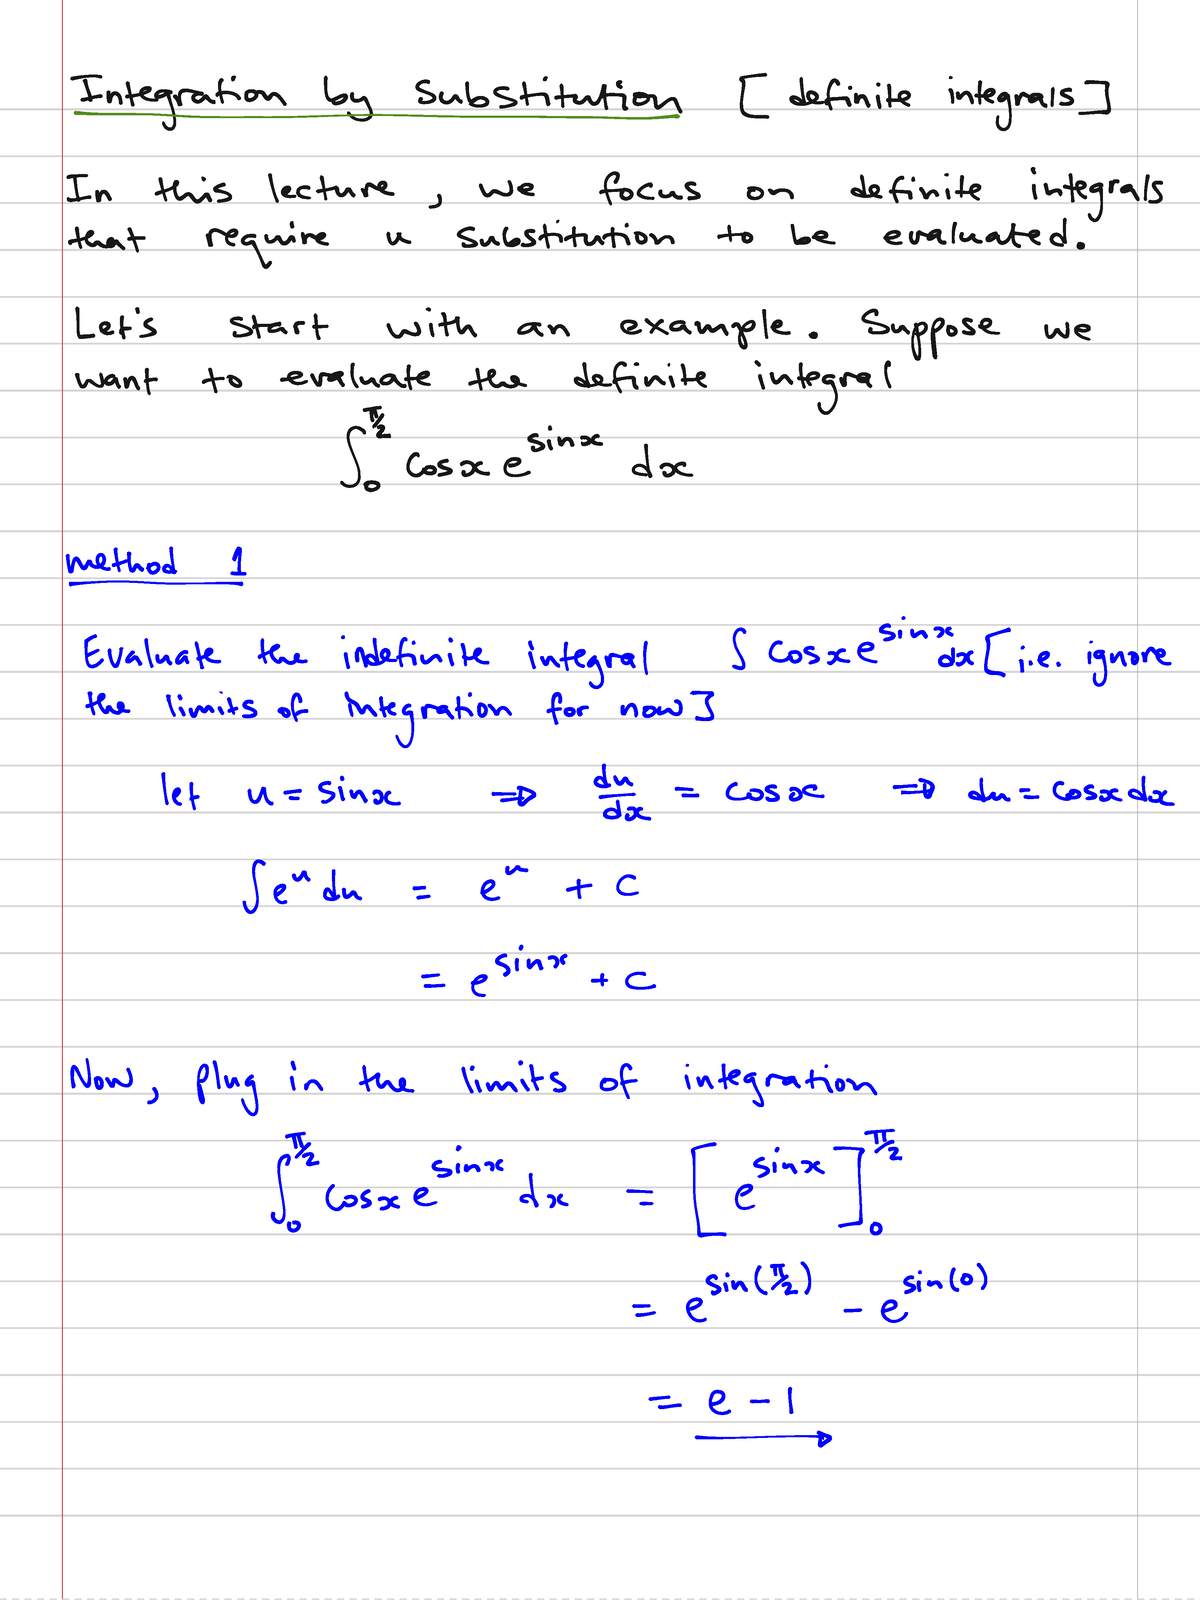 Integration by Substitution [definite integrals]
In this lecture, we focus on definite integrals
that require u substitution to be evaluated.
Let's start with an example. Suppose we
want to evaluate the definite integral
∫₀^(π/2) cosx e^(sinx) dx
method 1
Evaluate the indefinite integral ∫ cosx e^(sinx) dx [i.e. ignore
the limits of integration for now]
let u = sinx ⇒ du/dx = cosx ⇒ du = cosx dx
∫e^u du = e^u + C
= e^(sinx) + C
Now, plug in the limits of integration
∫₀^(π/2) cosx e^(sinx) dx = [e^(sinx)]₀^(π/2)
= e^(sin(π/2)) - e^(sin(0))
= e - 1